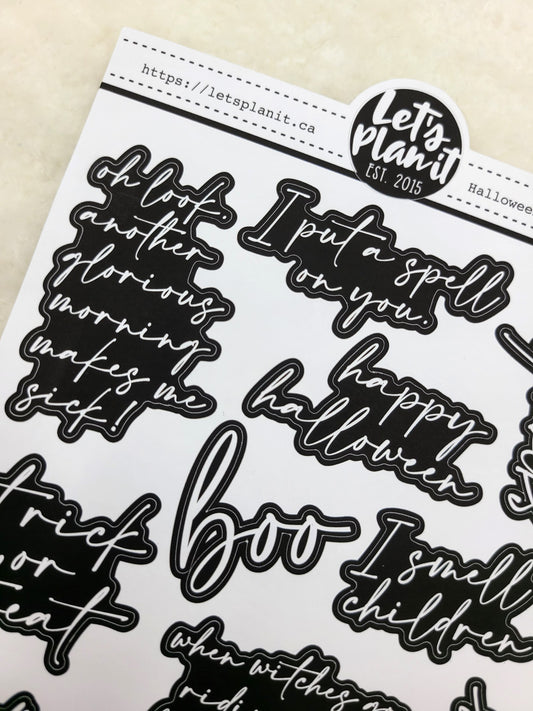 https://letsplanit.ca
Let's
plan it
EST. 2015
oh look,
another
glorious
morning
makes me
sick!
I put a spell
on you.
happy
halloween
boo
trick
or
treat
I smell
children
when witches go